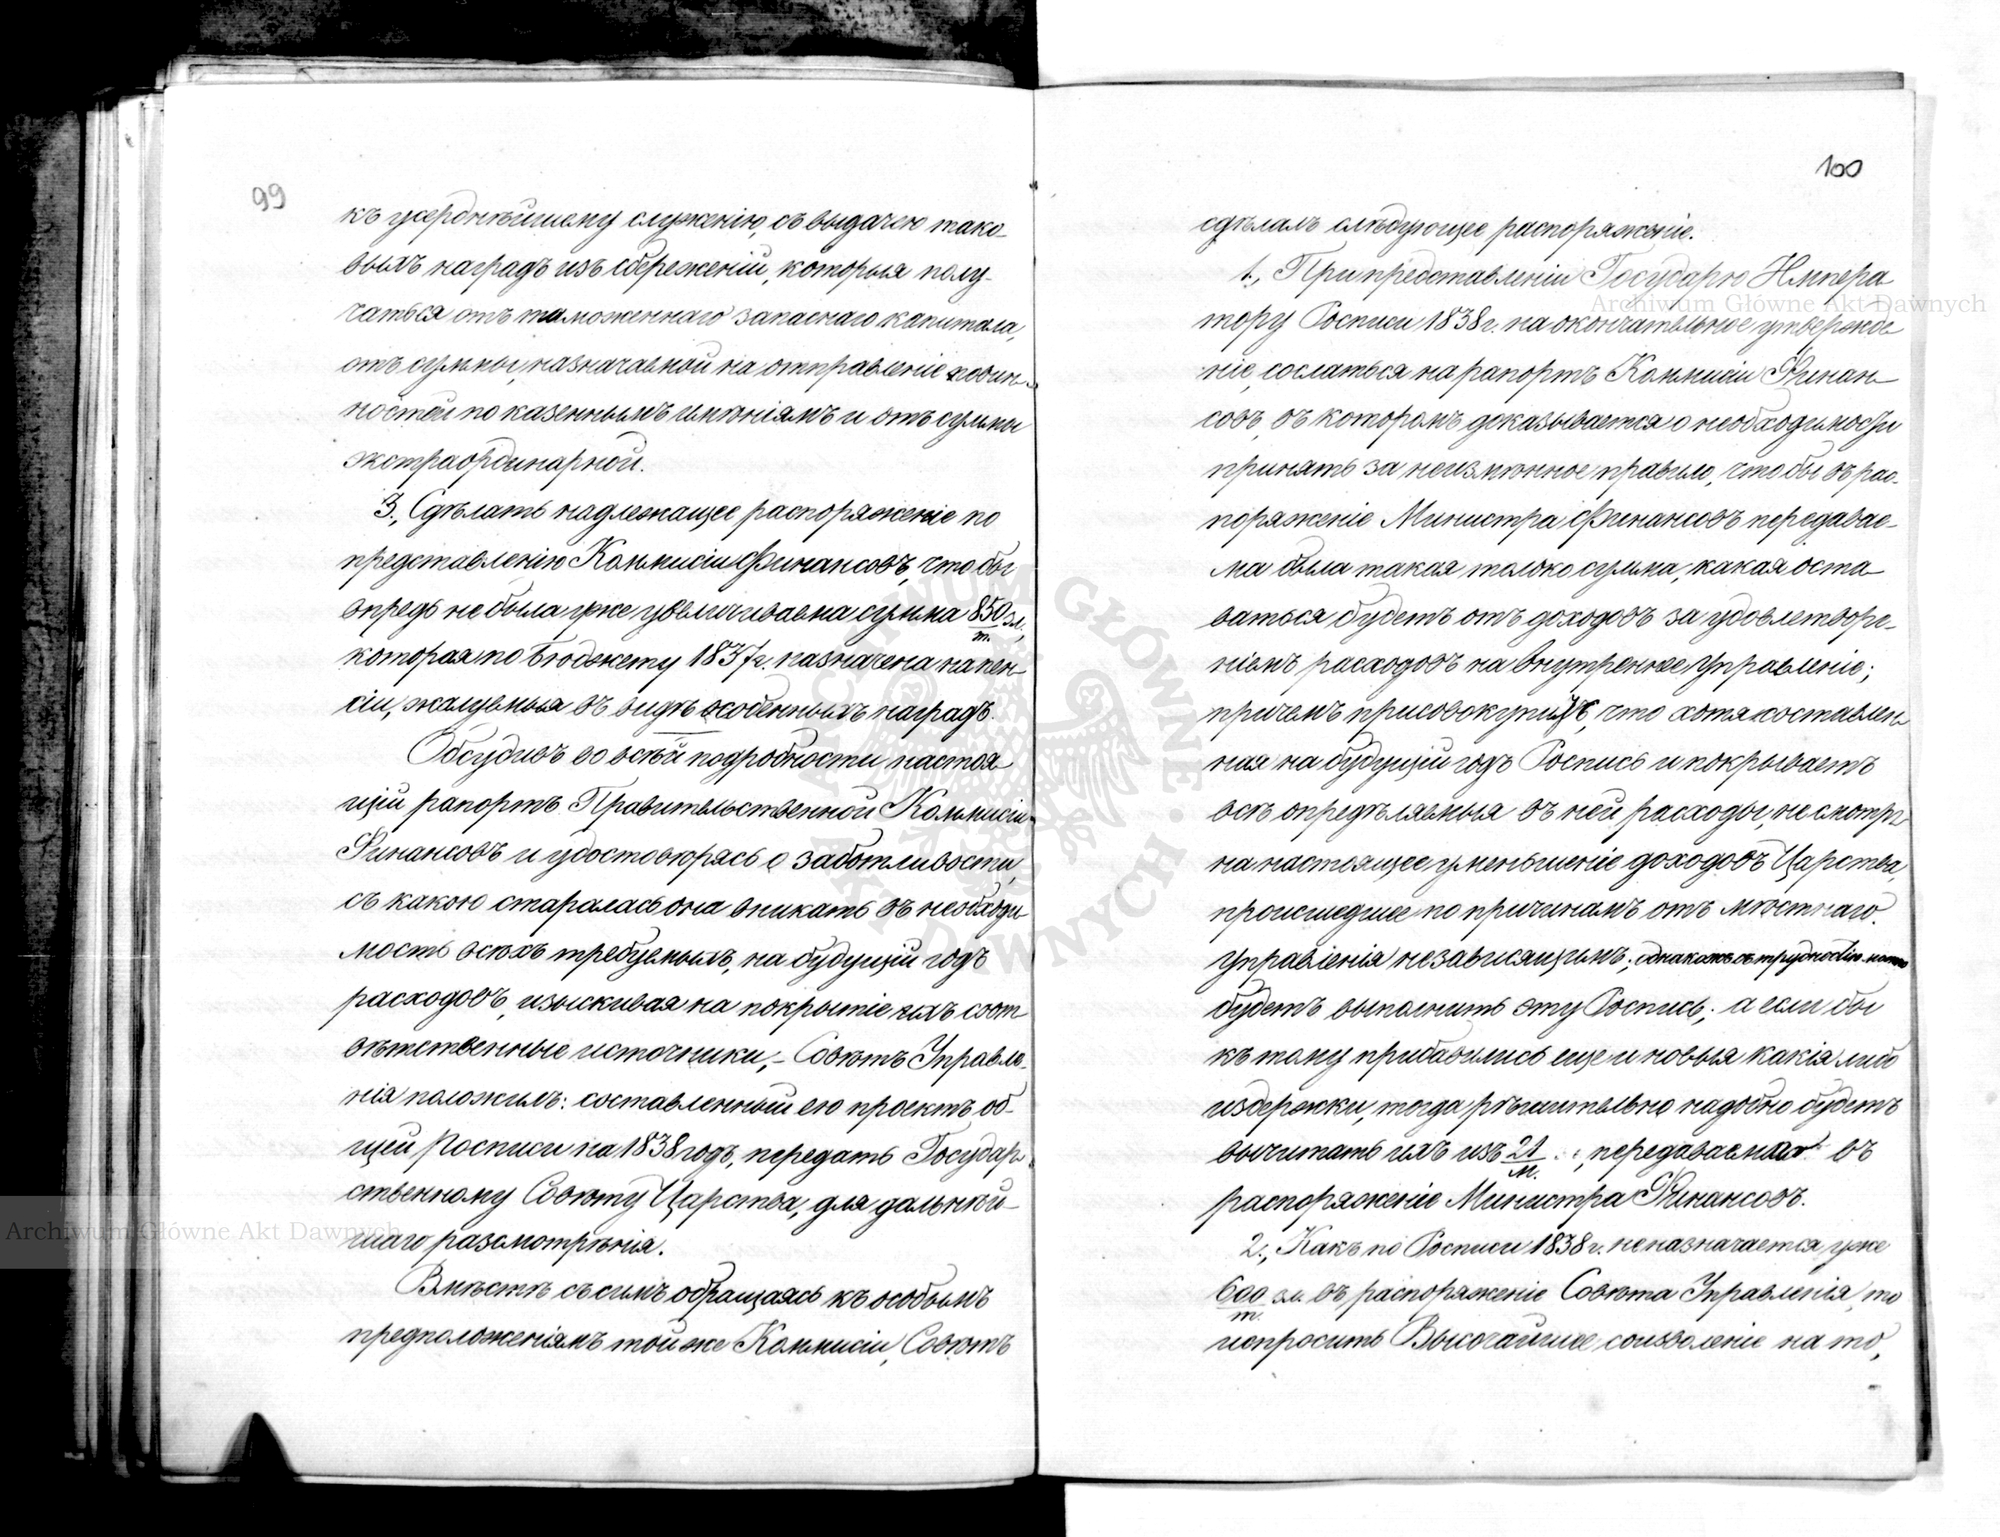 99
къ усерднѣйшему служенію, съ выдачею тако-
выхъ наградъ изъ сбереженій, которыя полу-
чаться отъ таможеннаго запаснаго капитала,
отъ суммы, назначаемой на отправленіе повин-
ностей по казеннымъ имѣніямъ и отъ суммы
экстраординарной.
3., Сдѣлать надлежащее распоряженіе по
представленію Коммисіи Финансовъ, что бы
впредь не была уже увеличиваема сумма 850/т. зл.,
которая по Бюджету 1837 г. назначена на пен-
сіи, жалуемыя въ видѣ особенныхъ наградъ.
Обсудивъ во всей подробности настоя-
щій рапортъ Правительственной Коммисіи
Финансовъ и удостовѣрясь о заботливости,
съ какою старалась она вникать въ необходи-
мость всѣхъ требуемыхъ, на будущій годъ
расходовъ, изыскивая на покрытіе ихъ соот-
вѣтственные источники, – Совѣтъ Управле-
нія положилъ: составленный ею проектъ об-
щей Росписи на 1838 годъ, передать Государ-
ственному Совѣту Царства, для дальнѣй-
шаго разсмотрѣнія.
Вмѣстѣ съ симъ обращаясь къ особымъ
предположеніямъ той же Коммисіи, Совѣтъ
100
сдѣлалъ слѣдующее распоряженіе.
1., При представленіи Государю Импера
тору Росписи 1838 г. на окончательное утвержде
ніе, сослаться на рапортъ Коммисіи Финан-
совъ, въ которомъ доказывается о необходимости
принять за неизмѣнное правило, что бы въ рас-
поряженіе Министра Финансовъ передавае-
ма была такая только сумма, какая оста-
ваться будетъ отъ доходовъ за удовлетворе-
ніемъ расходовъ на внутреннее Управленіе;
причемъ присовокупить, что хотя составлен-
ная на будущій годъ Роспись и покрываетъ
всѣ опредѣляемыя въ ней расходы, не смотря
на настоящее уменьшеніе доходовъ Царства,
происшедшее по причинамъ отъ мѣстнаго
Управленія независящимъ; однакожъ съ трудностію можно
будетъ выполнить эту Роспись; а если бы
къ тому прибавились еще и новыя какія либо
издержки, тогда рѣшительно надобно будетъ
вычитать ихъ изъ 21/м. передаваемыхъ въ
распоряженіе Министра Финансовъ.
2., Какъ по Росписи 1838 г. неназначается уже
600/т. зл. въ распоряженіе Совѣта Управленія, то
испросить Высочайшее соизволеніе на то,
Archiwum Główne Akt Dawnych
Archiwum Główne Akt Dawnych
ARCHIWUM GŁÓWNE AKT DAWNYCH